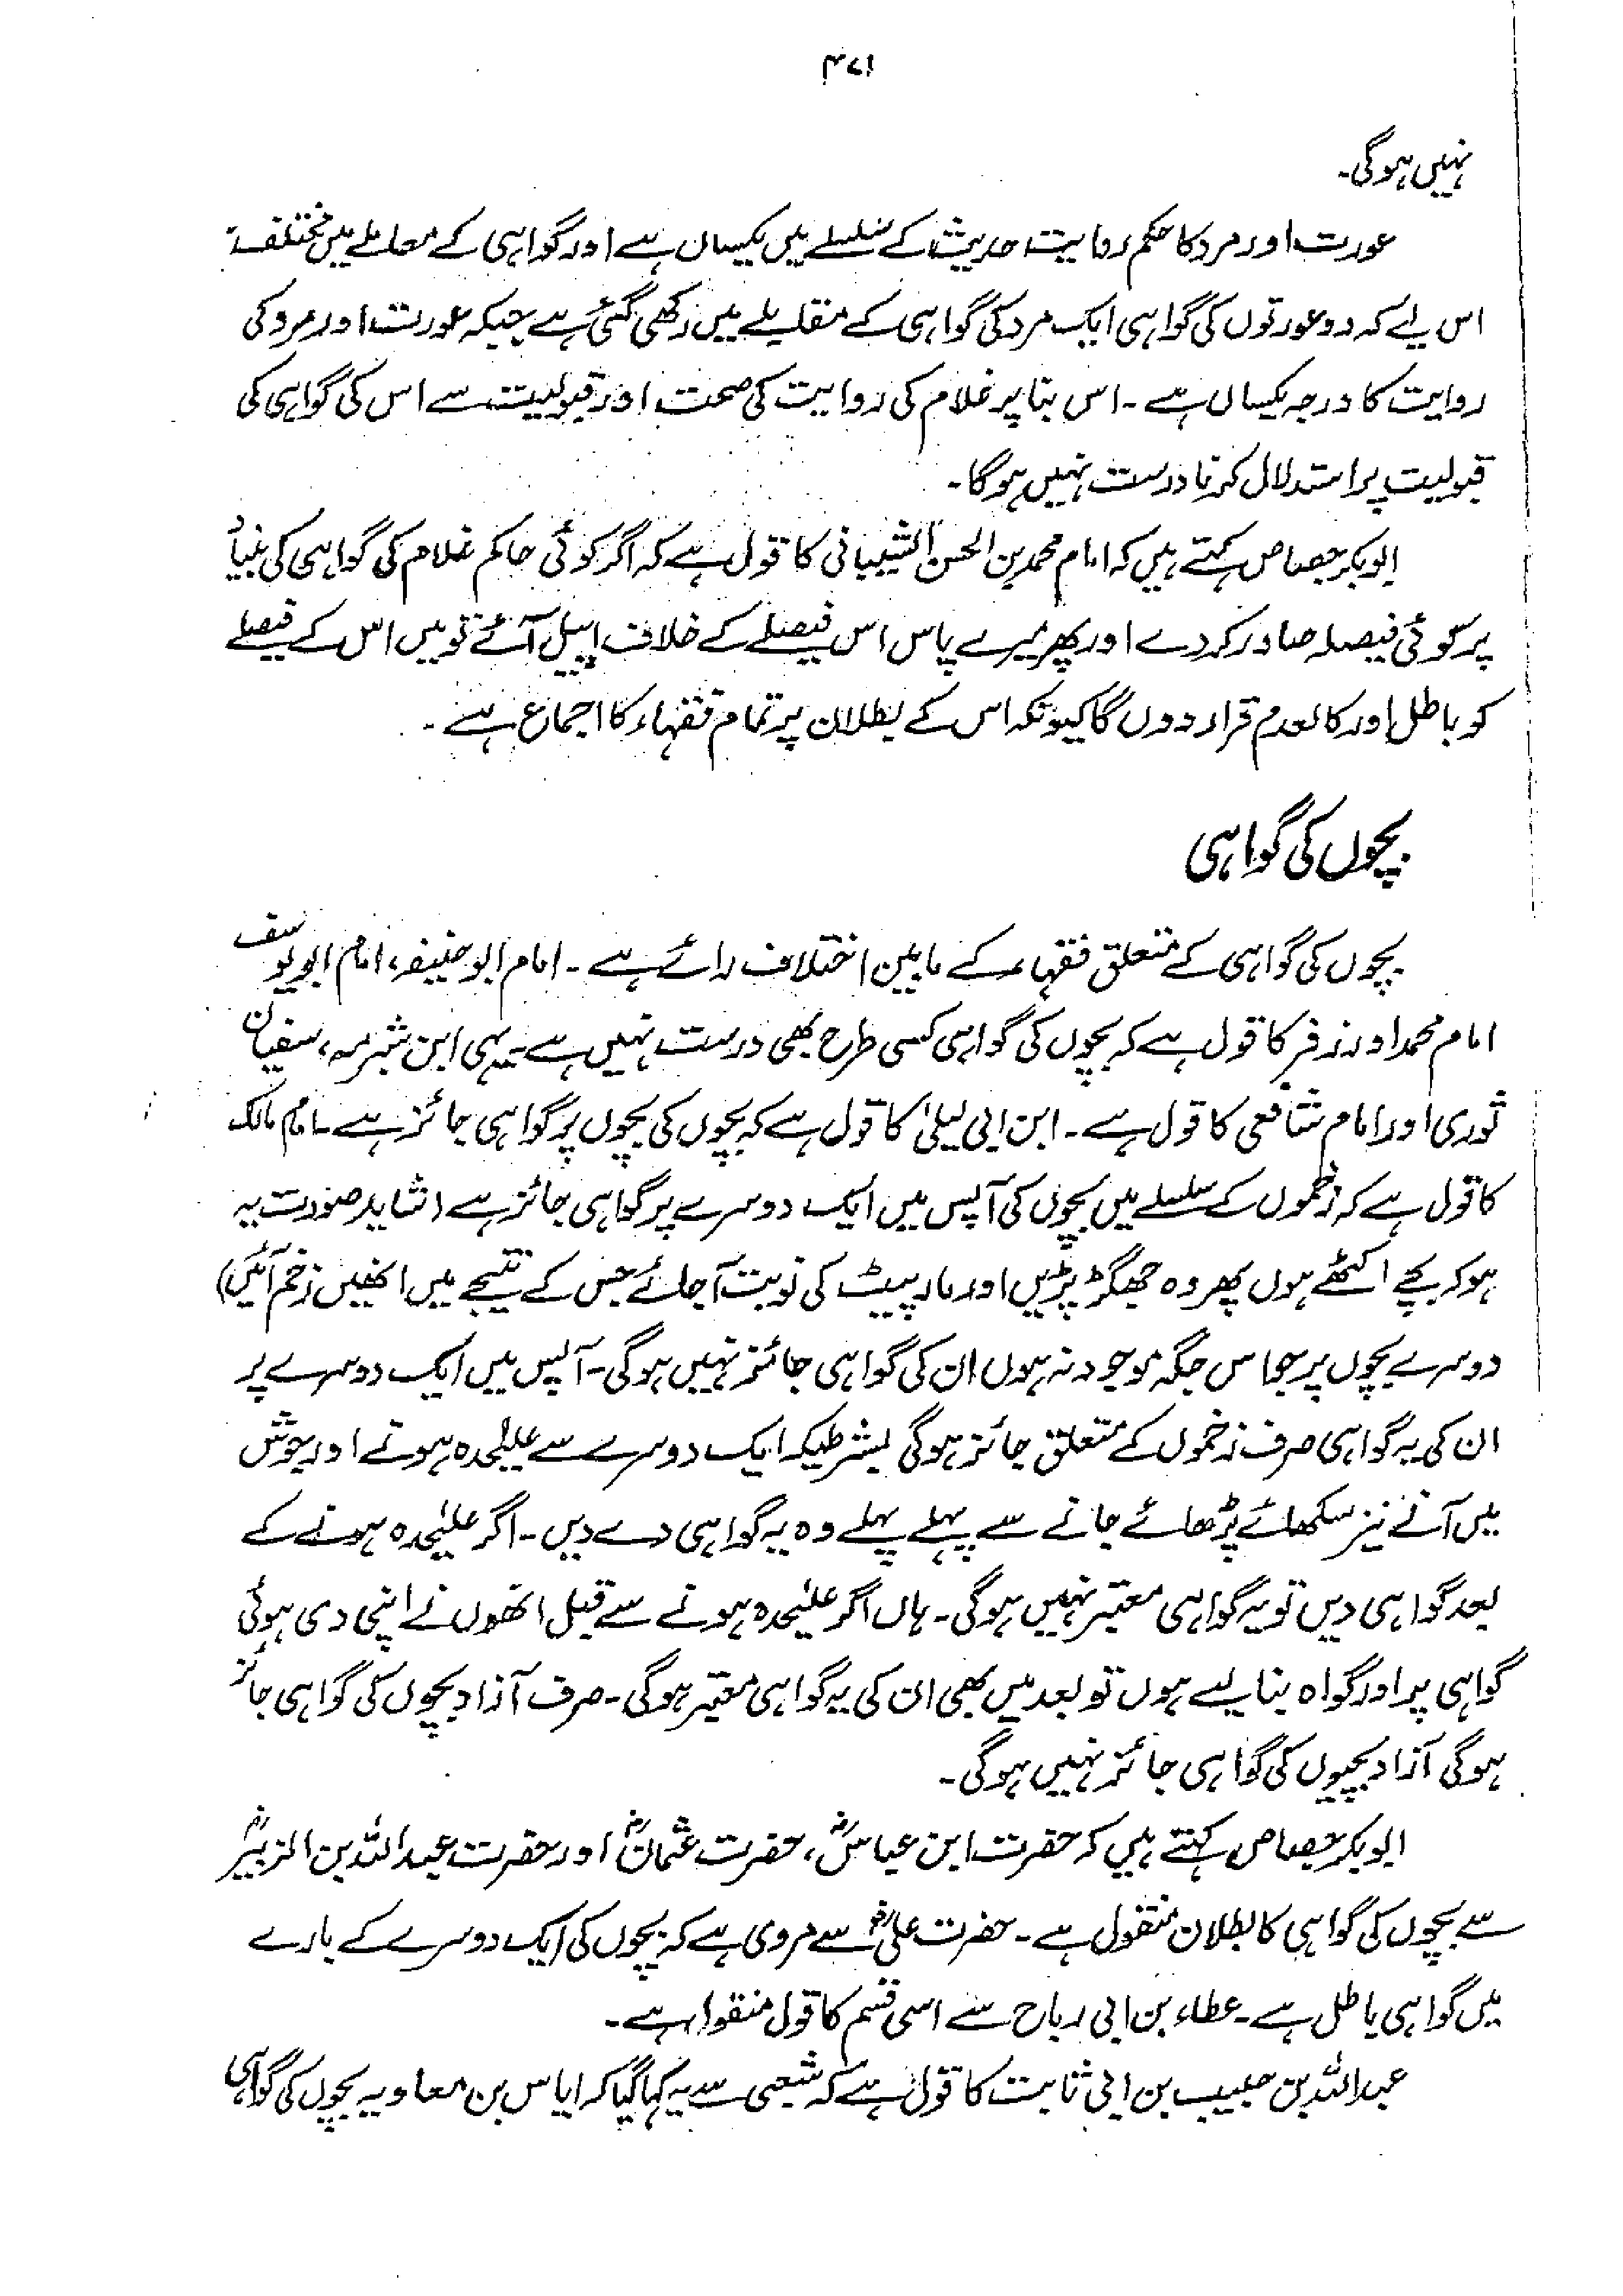 ۴۷۱
نہیں ہوگی۔
عورت اور مرد کا حکم روایت حدیث کے سلسلے میں یکساں ہے اور گواہی کے معاملے میں مختلف
اس لیے کہ دو عورتوں کی گواہی ایک مرد کی گواہی کے مقابلے میں رکھی گئی ہے جبکہ عورت اور مرد کی
روایت کا درجہ یکساں ہے۔ اس بنا پر غلام کی روایت کی صحت اور قبولیت سے اس کی گواہی کی
قبولیت پر استدلال کرنا درست نہیں ہوگا۔
ابوبکر جصاص کہتے ہیں کہ امام محمد بن الحسن الشیبانی کا قول ہے کہ اگر کوئی حاکم غلام کی گواہی کی بنیاد
پر کوئی فیصلہ صادر کر دے اور پھر میرے پاس اس فیصلے کے خلاف اپیل آئے تو میں اس کے فیصلے
کو باطل اور کالعدم قرار دوں گا کیونکہ اس کے بطلان پر تمام فقہاء کا اجماع ہے۔
بچوں کی گواہی
بچوں کی گواہی کے متعلق فقہاء کے مابین اختلاف رائے ہے۔ امام ابو حنیفہ، امام ابو یوسف
امام محمد اور زفر کا قول ہے کہ بچوں کی گواہی کسی طرح بھی درست نہیں ہے یہی ابن شبرمہ، سفیان
ثوری اور امام شافعی کا قول ہے۔ ابن ابی لیلیٰ کا قول ہے کہ بچوں کی بچوں پر گواہی جائز ہے۔ امام مالک
کا قول ہے کہ زخموں کے سلسلے میں بچوں کی آپس میں ایک دوسرے پر گواہی جائز ہے (شاید صورت یہ
ہو کہ بچے اکٹھے ہوں پھر وہ جھگڑ پڑیں اور مار پیٹ کی نوبت آجائے جس کے نتیجے میں انھیں زخم آئیں)
دوسرے بچوں پر جو اس جگہ موجود نہ ہوں ان کی گواہی جائز نہیں ہوگی۔ آپس میں ایک دوسرے پر
ان کی یہ گواہی صرف زخموں کے متعلق جائز ہوگی بشرطیکہ ایک دوسرے سے علیٰحدہ ہونے اور جوش
میں آنے نیز سکھائے پڑھائے جانے سے پہلے پہلے وہ یہ گواہی دے دیں۔ اگر علیٰحدہ ہونے کے
بعد گواہی دیں تو یہ گواہی معتبر نہیں ہوگی۔ ہاں اگر علیٰحدہ ہونے سے قبل انھوں نے اپنی دی ہوئی
گواہی پر اور گواہ بنا لیے ہوں تو بعد میں بھی ان کی یہ گواہی معتبر ہوگی۔ صرف آزاد بچوں کی گواہی جائز
ہوگی آزاد بچیوں کی گواہی جائز نہیں ہوگی۔
ابوبکر جصاص کہتے ہیں کہ حضرت ابن عباسؓ، حضرت عثمانؓ اور حضرت عبداللہ بن الزبیرؓ
سے بچوں کی گواہی کا بطلان منقول ہے۔ حضرت علیؓ سے مروی ہے کہ بچوں کی ایک دوسرے کے بارے
میں گواہی باطل ہے۔ عطاء بن ابی رباح سے اسی قسم کا قول منقول ہے۔
عبداللہ بن حبیب بن ابی ثابت کا قول ہے کہ شعبی سے یہ کہا گیا کہ ایاس بن معاویہ بچوں کی گواہی